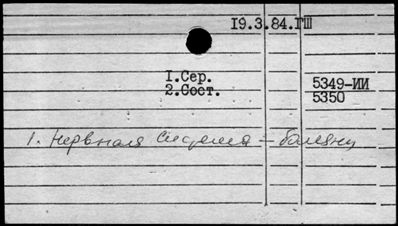 19.3.84.ГШ
1.Сер.
2.Сост.
5349-ИИ
5350
1. Нервная система – болезни